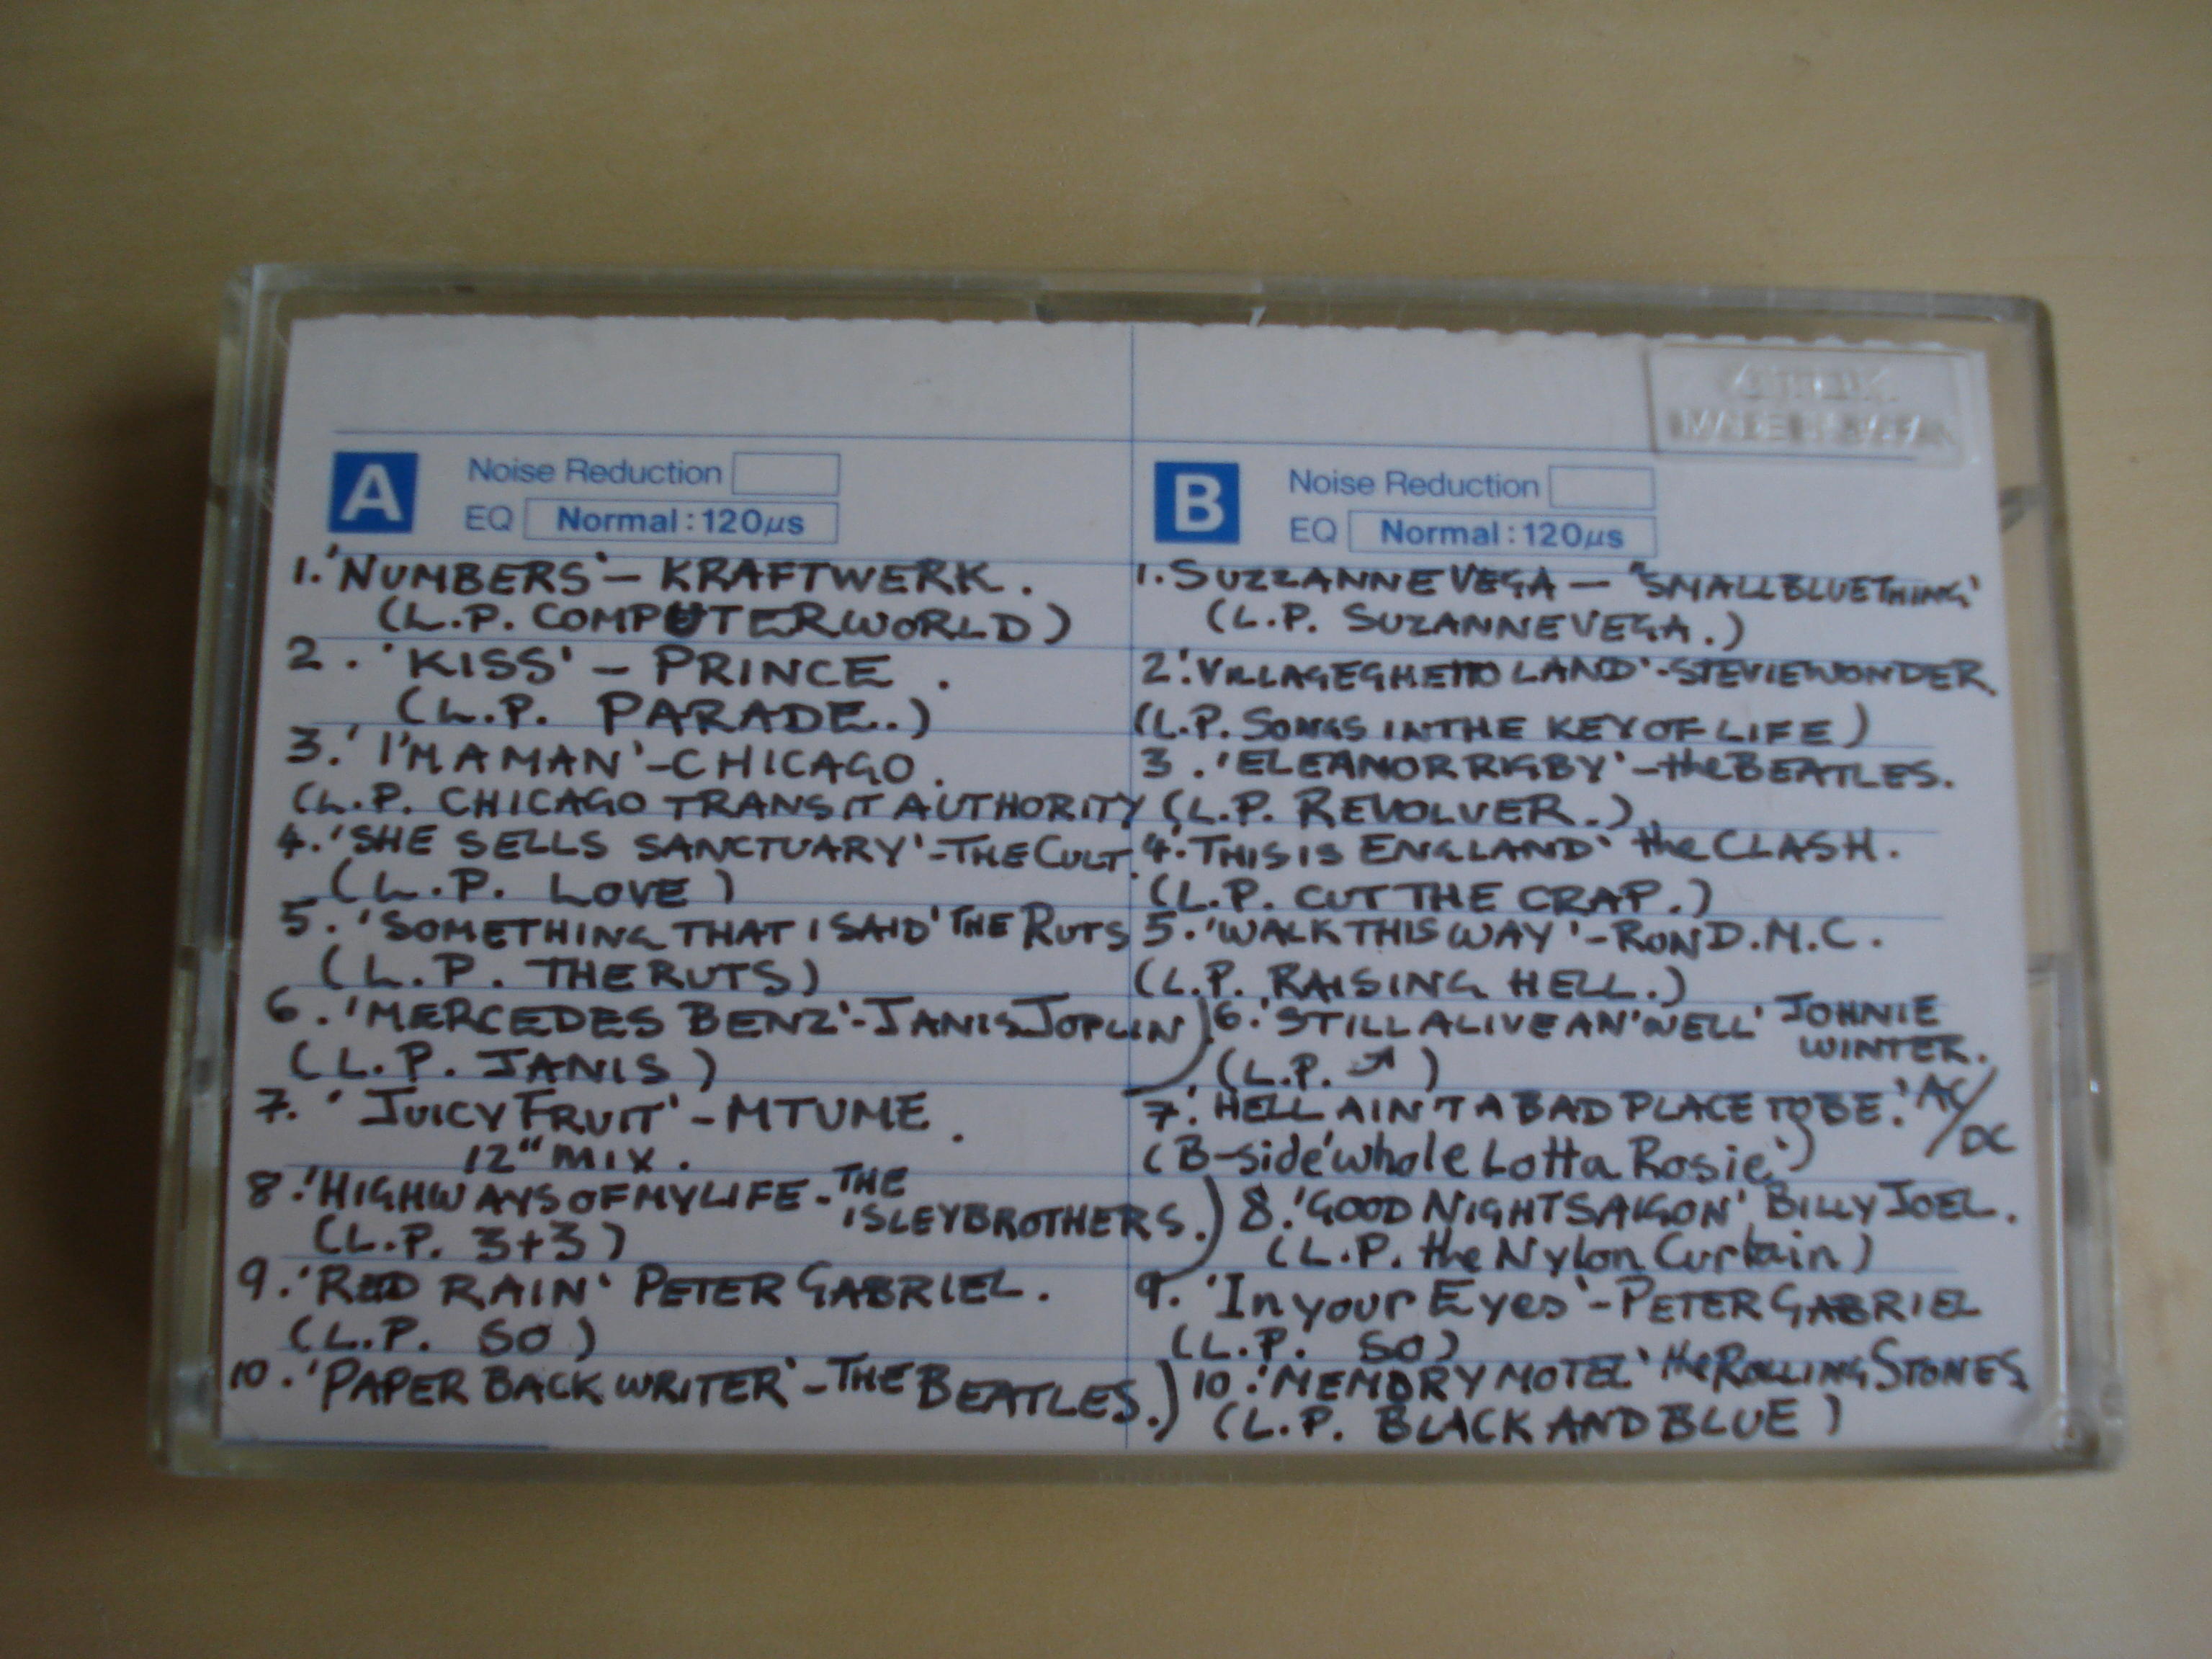 A
Noise Reduction
EQ Normal : 120μs
1. 'NUMBERS' - KRAFTWERK.
(L.P. COMPUTERWORLD)
2. 'KISS' - PRINCE.
(L.P. PARADE.)
3. 'I'M A MAN' - CHICAGO.
(L.P. CHICAGO TRANSIT AUTHORITY
4. 'SHE SELLS SANCTUARY' - THE CULT.
(L.P. LOVE)
5. 'SOMETHING THAT I SAID' THE RUTS
(L.P. THE RUTS)
6. 'MERCEDES BENZ' - JANIS JOPLIN
(L.P. JANIS)
7. 'JUICY FRUIT' - MTUME.
12" MIX.
8. 'HIGHWAYS OF MY LIFE - THE
ISLEY BROTHERS.
(L.P. 3+3)
9. 'RED RAIN' PETER GABRIEL.
(L.P. SO)
10. 'PAPER BACK WRITER' - THE BEATLES.
B
MADE IN JAPAN
Noise Reduction
EQ Normal : 120μs
1. SUZZANNE VEGA - "SMALL BLUE THING'
(L.P. SUZANNE VEGA.)
2. 'VILLAGE GHETTO LAND' - STEVIE WONDER.
(L.P. SONGS IN THE KEY OF LIFE)
3. 'ELEANOR RIGBY' - the BEATLES.
(L.P. REVOLVER.)
4. 'THIS IS ENGLAND' the CLASH.
(L.P. CUT THE CRAP.)
5. 'WALK THIS WAY' - RUN D.M.C.
(L.P. RAISING HELL.)
6. 'STILL ALIVE AN' WELL' JOHNIE
WINTER.
(L.P. ↗)
7. 'HELL AIN'T A BAD PLACE TO BE.' AC/DC
(B-side 'whole Lotta Rosie')
8. 'GOOD NIGHT SAIGON' BILLY JOEL.
(L.P. the Nylon Curtain)
9. 'In your Eyes' - PETER GABRIEL
(L.P. SO)
10. 'MEMORY MOTEL' the ROLLING STONES
(L.P. BLACK AND BLUE)